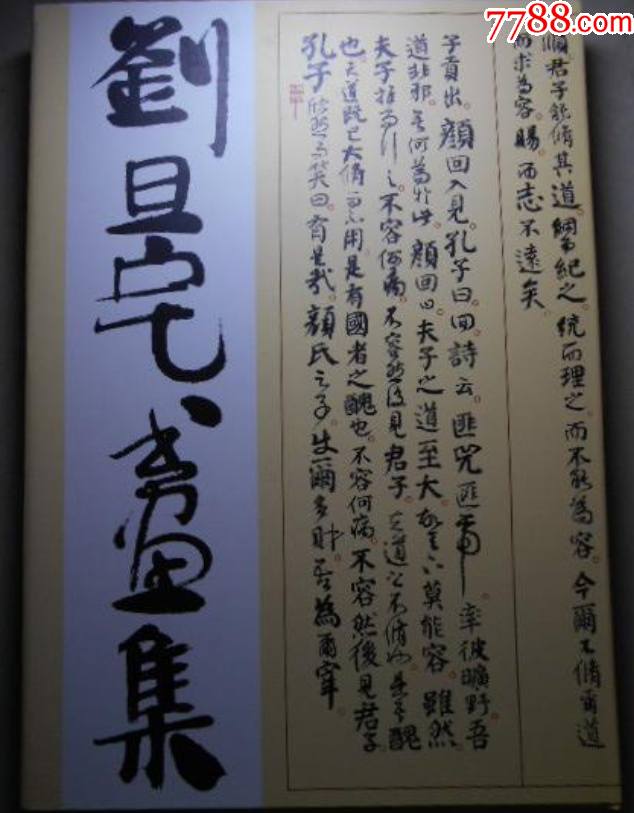 7788.com
劉旦宅書畫集
爾君子能脩其道。綱而紀之。統而理之。而不能為容。今爾不脩爾道
而求為容。賜。而志不遠矣。
子貢出。顏回入見。孔子曰。回。詩云。匪兕匪虎。率彼曠野。吾
道非邪。吾何為於此。顏回曰。夫子之道至大。故天下莫能容。雖然
夫子推而行之。不容何病。不容然後見君子。夫道之不脩也。是吾醜
也。夫道既已大脩而不用。是有國者之醜也。不容何病。不容然後見君子
孔子欣然而笑曰。有是哉。顏氏之子。使爾多財。吾為爾宰。